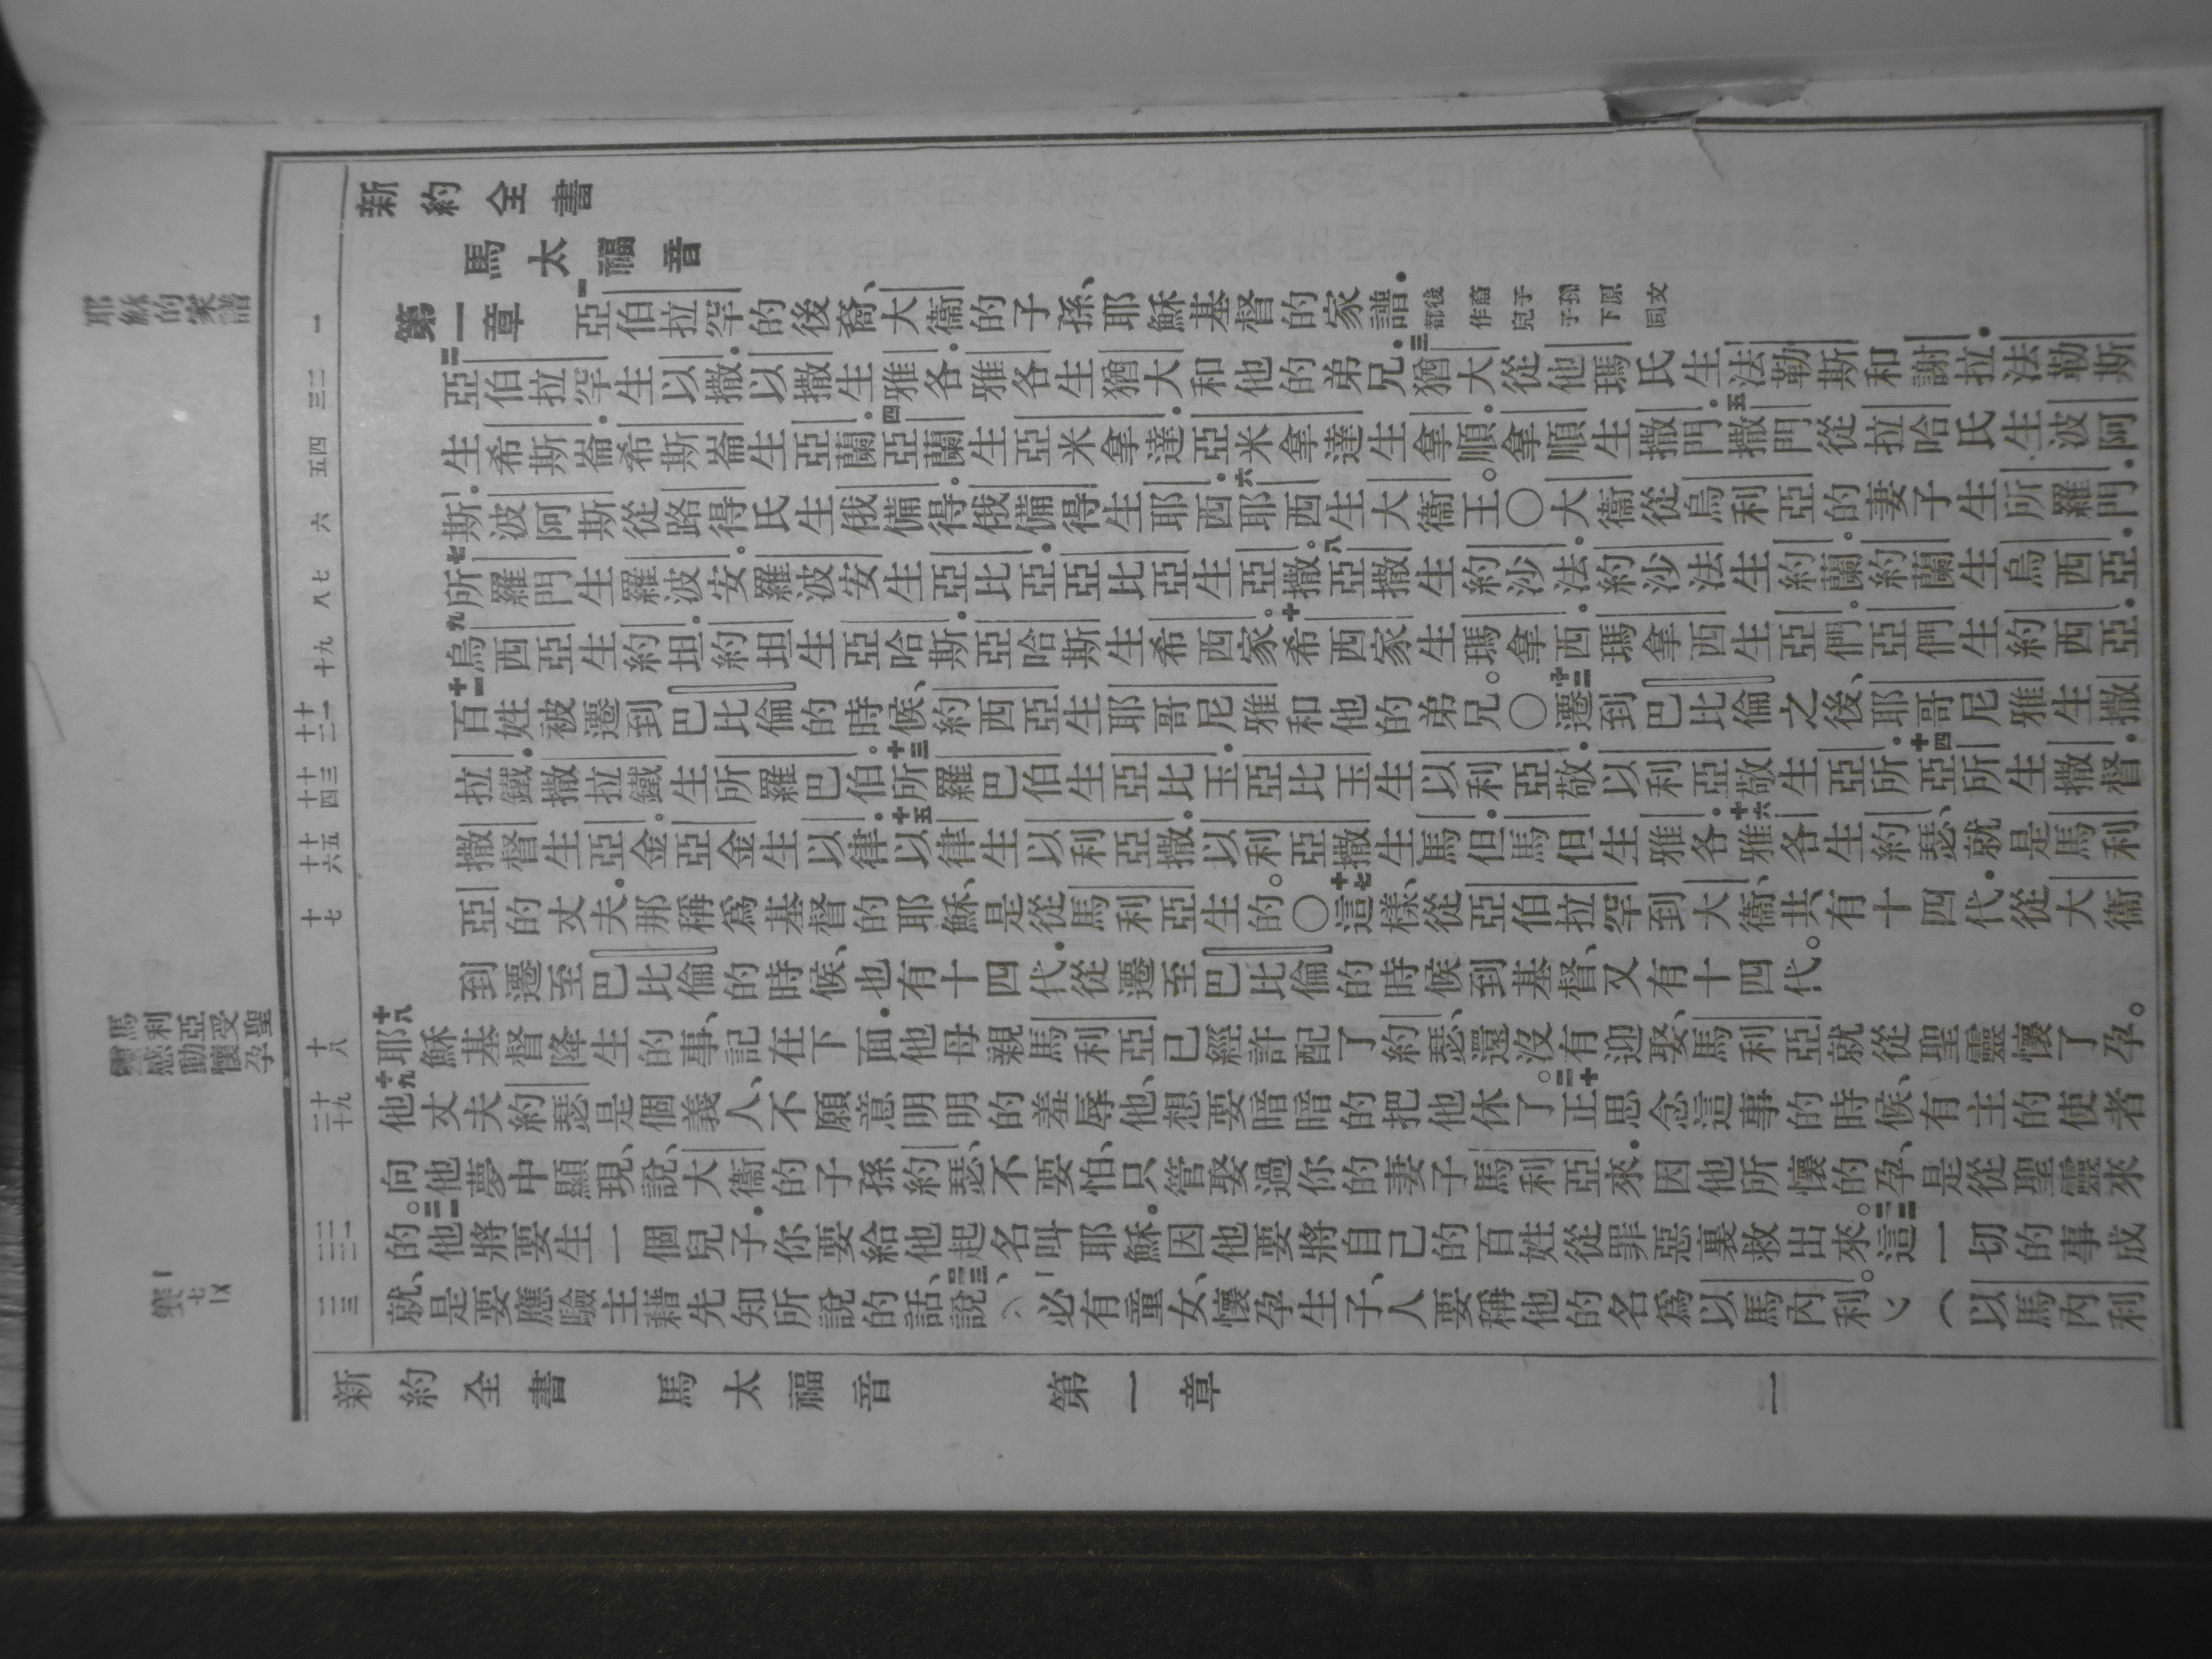 新約全書
馬太福音
耶穌的家譜
第一章　一亞伯拉罕的後裔、大衞的子孫、耶穌基督的家譜．後裔子孫原文都作兒子下同
二亞伯拉罕生以撒．以撒生雅各．雅各生猶大和他的弟兄．三猶大從他瑪氏生法勒斯和謝拉．法勒斯
生希斯崙．希斯崙生亞蘭．四亞蘭生亞米拿達．亞米拿達生拿順．拿順生撒門．五撒門從拉哈氏生波阿
斯．波阿斯從路得氏生俄備得．俄備得生耶西．六耶西生大衞王。○大衞從烏利亞的妻子生所羅門．
七所羅門生羅波安．羅波安生亞比亞．亞比亞生亞撒。八亞撒生約沙法．約沙法生約蘭．約蘭生烏西亞．
九烏西亞生約坦．約坦生亞哈斯．亞哈斯生希西家。十希西家生瑪拿西．瑪拿西生亞們．亞們生約西亞．
十一百姓被遷到巴比倫的時候、約西亞生耶哥尼雅和他的弟兄。○十二遷到巴比倫之後、耶哥尼雅生撒
拉鐵．撒拉鐵生所羅巴伯．十三所羅巴伯生亞比玉．亞比玉生以利亞敬．以利亞敬生亞所．十四亞所生撒督．
撒督生亞金。亞金生以律．十五以律生以利亞撒．以利亞撒生馬但．馬但生雅各．十六雅各生約瑟、就是馬利
亞的丈夫．那稱爲基督的耶穌、是從馬利亞生的。○十七這樣、從亞伯拉罕到大衞、共有十四代．從大衞
到遷至巴比倫的時候、也有十四代．從遷至巴比倫的時候到基督、又有十四代。
馬利亞受聖靈感動懷孕
十八耶穌基督降生的事、記在下面．他母親馬利亞已經許配了約瑟、還沒有迎娶、馬利亞就從聖靈懷了孕。
十九他丈夫約瑟是個義人、不願意明明的羞辱他、想要暗暗的把他休了。二十正思念這事的時候、有主的使者
向他夢中顯現、說、大衞的子孫約瑟、不要怕、只管娶過你的妻子馬利亞來．因他所懷的孕、是從聖靈來
的。二一他將要生一個兒子．你要給他起名叫耶穌。因他要將自己的百姓從罪惡裏救出來。二二這一切的事成
就、是要應驗主藉先知所說的話、二三說、必有童女、懷孕生子、人要稱他的名爲以馬內利。（以馬內利
新約全書　馬太福音　第一章　一